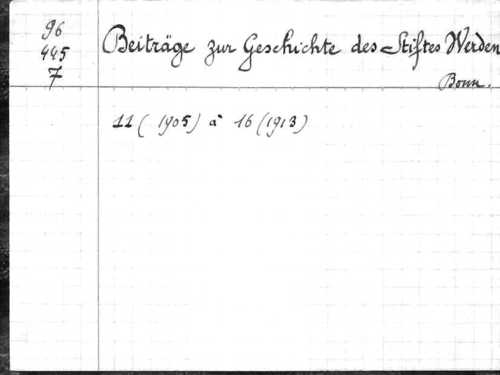 96
445
7
Beiträge zur Geschichte des Stiftes Werden
Bonn.
11 (1905) à 16 (1913)